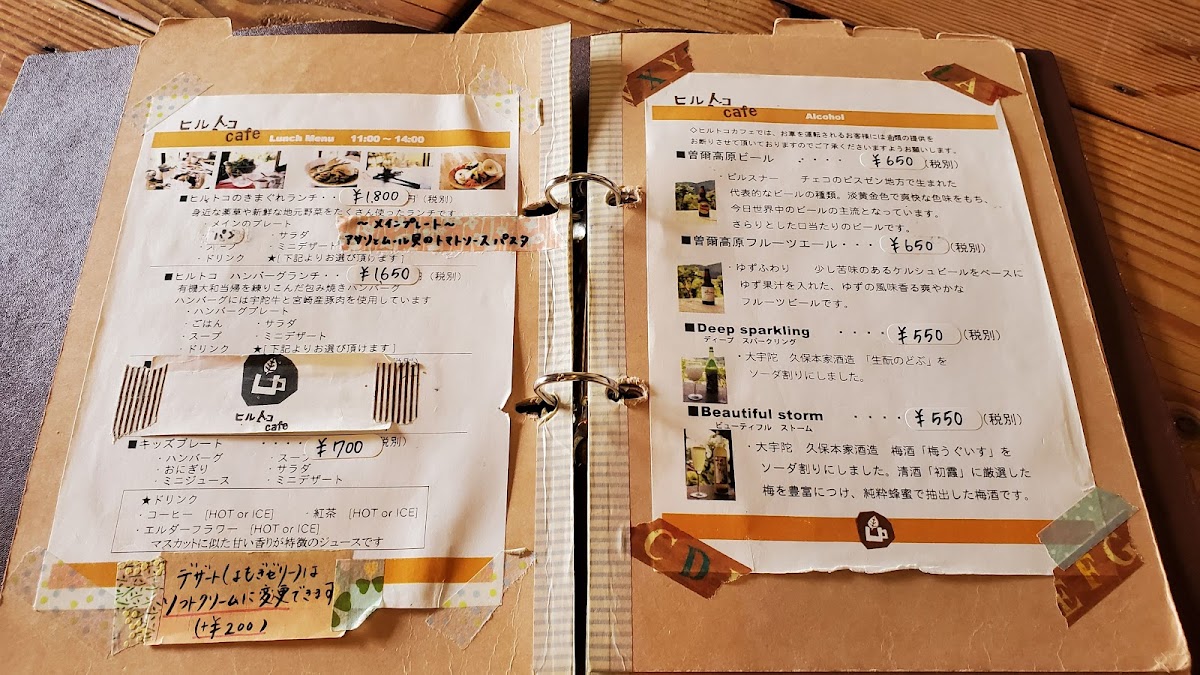 ヒルトコ
cafe
Lunch Menu 11:00～14:00
■ヒルトコのきまぐれランチ・・ ￥1,800 円(税別)
身近な薬草や新鮮な地元野菜をたくさん使ったランチです
・メインのプレート
～メインプレート～
アサリとムール貝のトマトソースパスタ
・パン ・サラダ
・スープ ・ミニデザート
・ドリンク ★[下記よりお選び頂けます]
■ヒルトコ ハンバーグランチ・・ ￥1650 円(税別)
有機大和当帰を練りこんだ包み焼きハンバーグ
ハンバーグには宇陀牛と宮崎産豚肉を使用しています
・ハンバーグプレート
・ごはん ・サラダ
・スープ ・ミニデザート
・ドリンク ★[下記よりお選び頂けます]
ヒルトコ
cafe
■キッズプレート ・・・・ ￥700 税別)
・ハンバーグ ・スープ
・おにぎり ・サラダ
・ミニジュース ・ミニデザート
★ドリンク
・コーヒー [HOT or ICE] ・紅茶 [HOT or ICE]
・エルダーフラワー [HOT or ICE]
マスカットに似た甘い香りが特徴のジュースです
デザート(よもぎゼリー)は
ソフトクリームに変更できます
(+￥200)
XY
LA
ヒルトコ
cafe
Alcohol
◇ヒルトコカフェでは、お車を運転されるお客様には酒類の提供を
お断りさせて頂いておりますのでご了承くださいますようお願いします。
■曽爾高原ビール ・・・・ ￥650 (税別)
・ピルスナー チェコのピスゼン地方で生まれた
代表的なビールの種類。淡黄金色で爽快な色味をもち、
今日世界中のビールの主流となっています。
さらりとした口当たりのビールです。
■曽爾高原フルーツエール・・・ ￥650 (税別)
・ゆずふわり 少し苦味のあるケルシュビールをベースに
ゆず果汁を入れた、ゆずの風味香る爽やかな
フルーツビールです。
■Deep sparkling ・・・・ ￥550 (税別)
ディープ スパークリング
・大宇陀 久保本家酒造 「生酛のどぶ」を
ソーダ割りにしました。
■Beautiful storm ・・・・ ￥550 (税別)
ビューティフル ストーム
・大宇陀 久保本家酒造 梅酒「梅うぐいす」を
ソーダ割りにしました。清酒「初霞」に厳選した
梅を豊富につけ、純粋蜂蜜で抽出した梅酒です。
CD
EFG